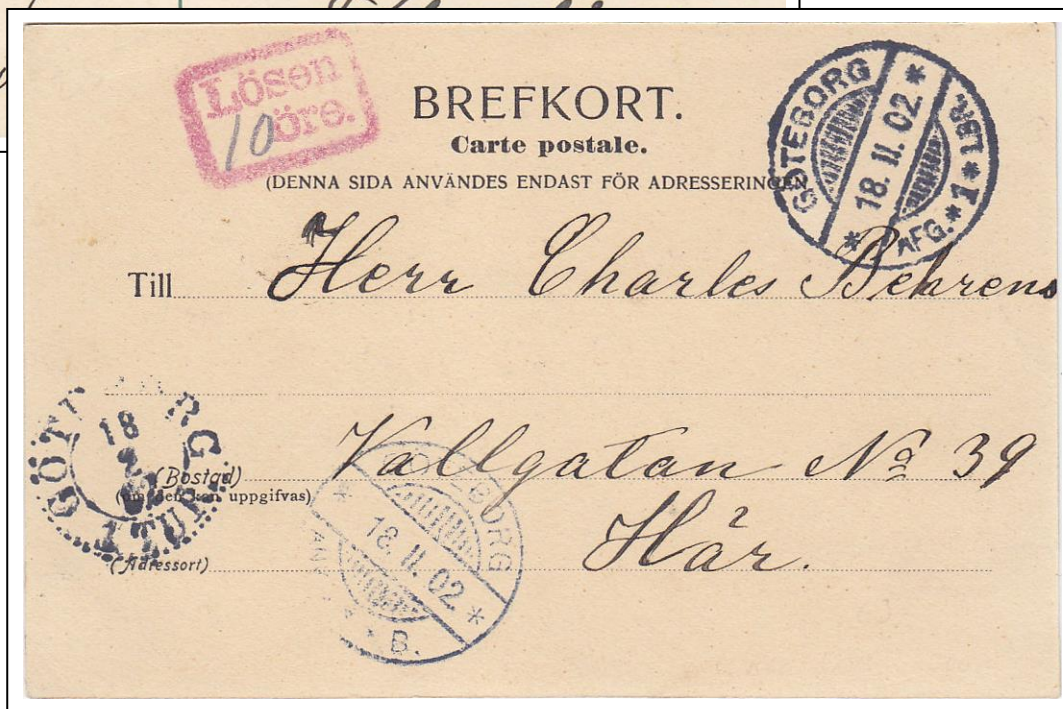 Lösen
10 öre.
BREFKORT.
Carte postale.
(DENNA SIDA ANVÄNDES ENDAST FÖR ADRESSERINGEN
GÖTEBORG
18. II. 02.
AFG. * 1 * LBR.
Till Herr Charles Behrens
GÖTEBORG
18
1 TUR
(Bostad)
uppgifvas)
Vallgatan No 39
Här.
(Adressort)
GÖTEBORG
18. II. 02.
B.